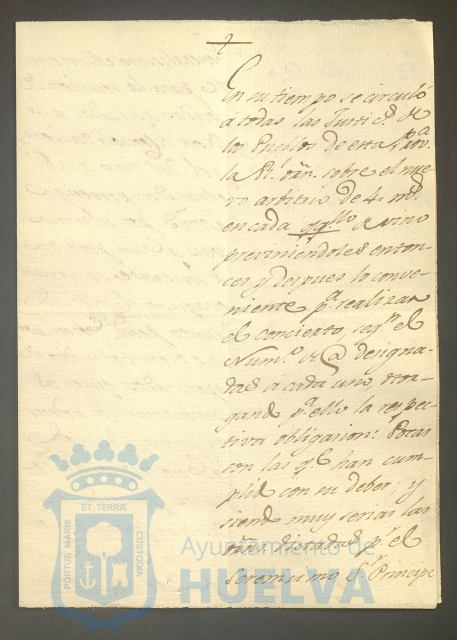 En su tiempo se circuló
a todas las Justic.s de
los Pueblos de esta Prov.a
la Rl. orn. sobre el nue-
vo arbitrio de 4 ms.
en cada de vino
previniendoles enton-
ces y despues lo conve-
niente p.a realizar
el concierto, seg.n el
Num.o de @ designa-
das a cada uno, otor-
gand p.a ello la respec-
tiva obligasion: Pocas
son las q.e han cum-
plid con su deber: y
siendo muy serias las
rñs. dictadas p.r el
Serenisimo S.r Principe
PORTUS MARIS ET TERRÆ CUSTODIA
Ayuntamiento de
HUELVA